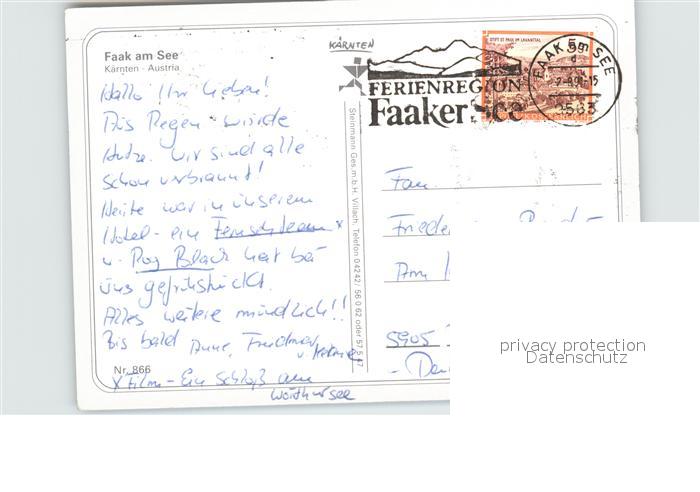 Faak am See
Kärnten - Austria
Hallo Ihr Lieben!
Aus Regen wurde
Hitze. Wir sind alle
schon verbrannt!
Heute war in unserem
Hotel - ein Fernsehteam x
u. Roy Black hat bei
uns gefrühstückt.
Alles weitere mündlich!!
Bis bald Anne, Friedmar
u.
Nr. 866
x Film - Ein Schloß am
Wörthersee
Steinmann Ges.m.b.H. Villach, Telefon 04242/ 56 0 62 oder 57 5 47
KÄRNTEN
FERIENREGION
Faaker See
STIFT ST. PAUL IM LAVANTTAL
FAAK am SEE
Fam.
Am
5905
privacy protection
Datenschutz